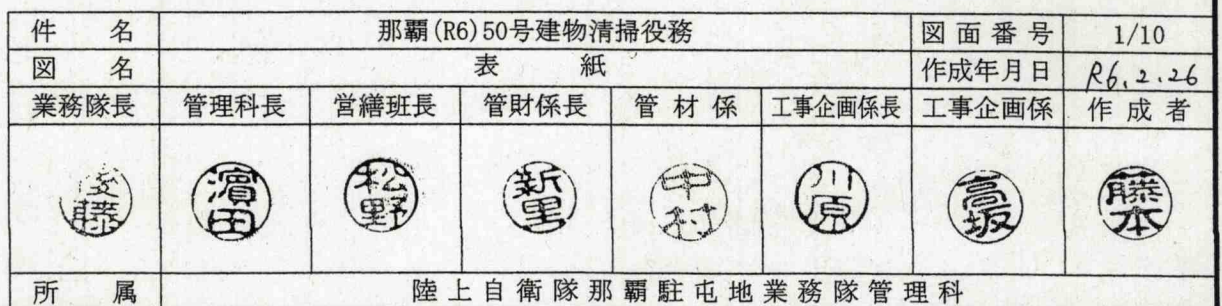 件 名 那覇(R6)50号建物清掃役務 図面番号 1/10
図 名 表 紙 作成年月日 R6.2.26
業務隊長 管理科長 営繕班長 管財係長 管材係 工事企画係長 工事企画係 作成者
安藤 濱田 松野 新里 中村 川原 高坂 藤本
所 属 陸上自衛隊那覇駐屯地業務隊管理科